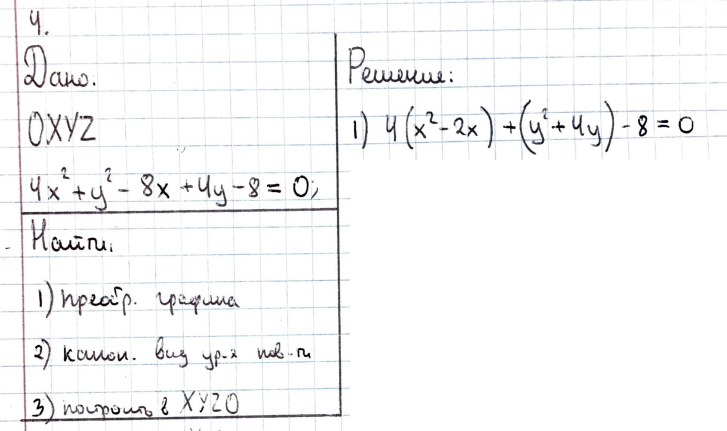 4.
Дано.
OXYZ
4x² + y² - 8x + 4y - 8 = 0;
Найти.
1) преобр. графика
2) канон. вид ур-я пов-ти
3) построить в XYZO
Решение:
1) 4(x² - 2x) + (y² + 4y) - 8 = 0